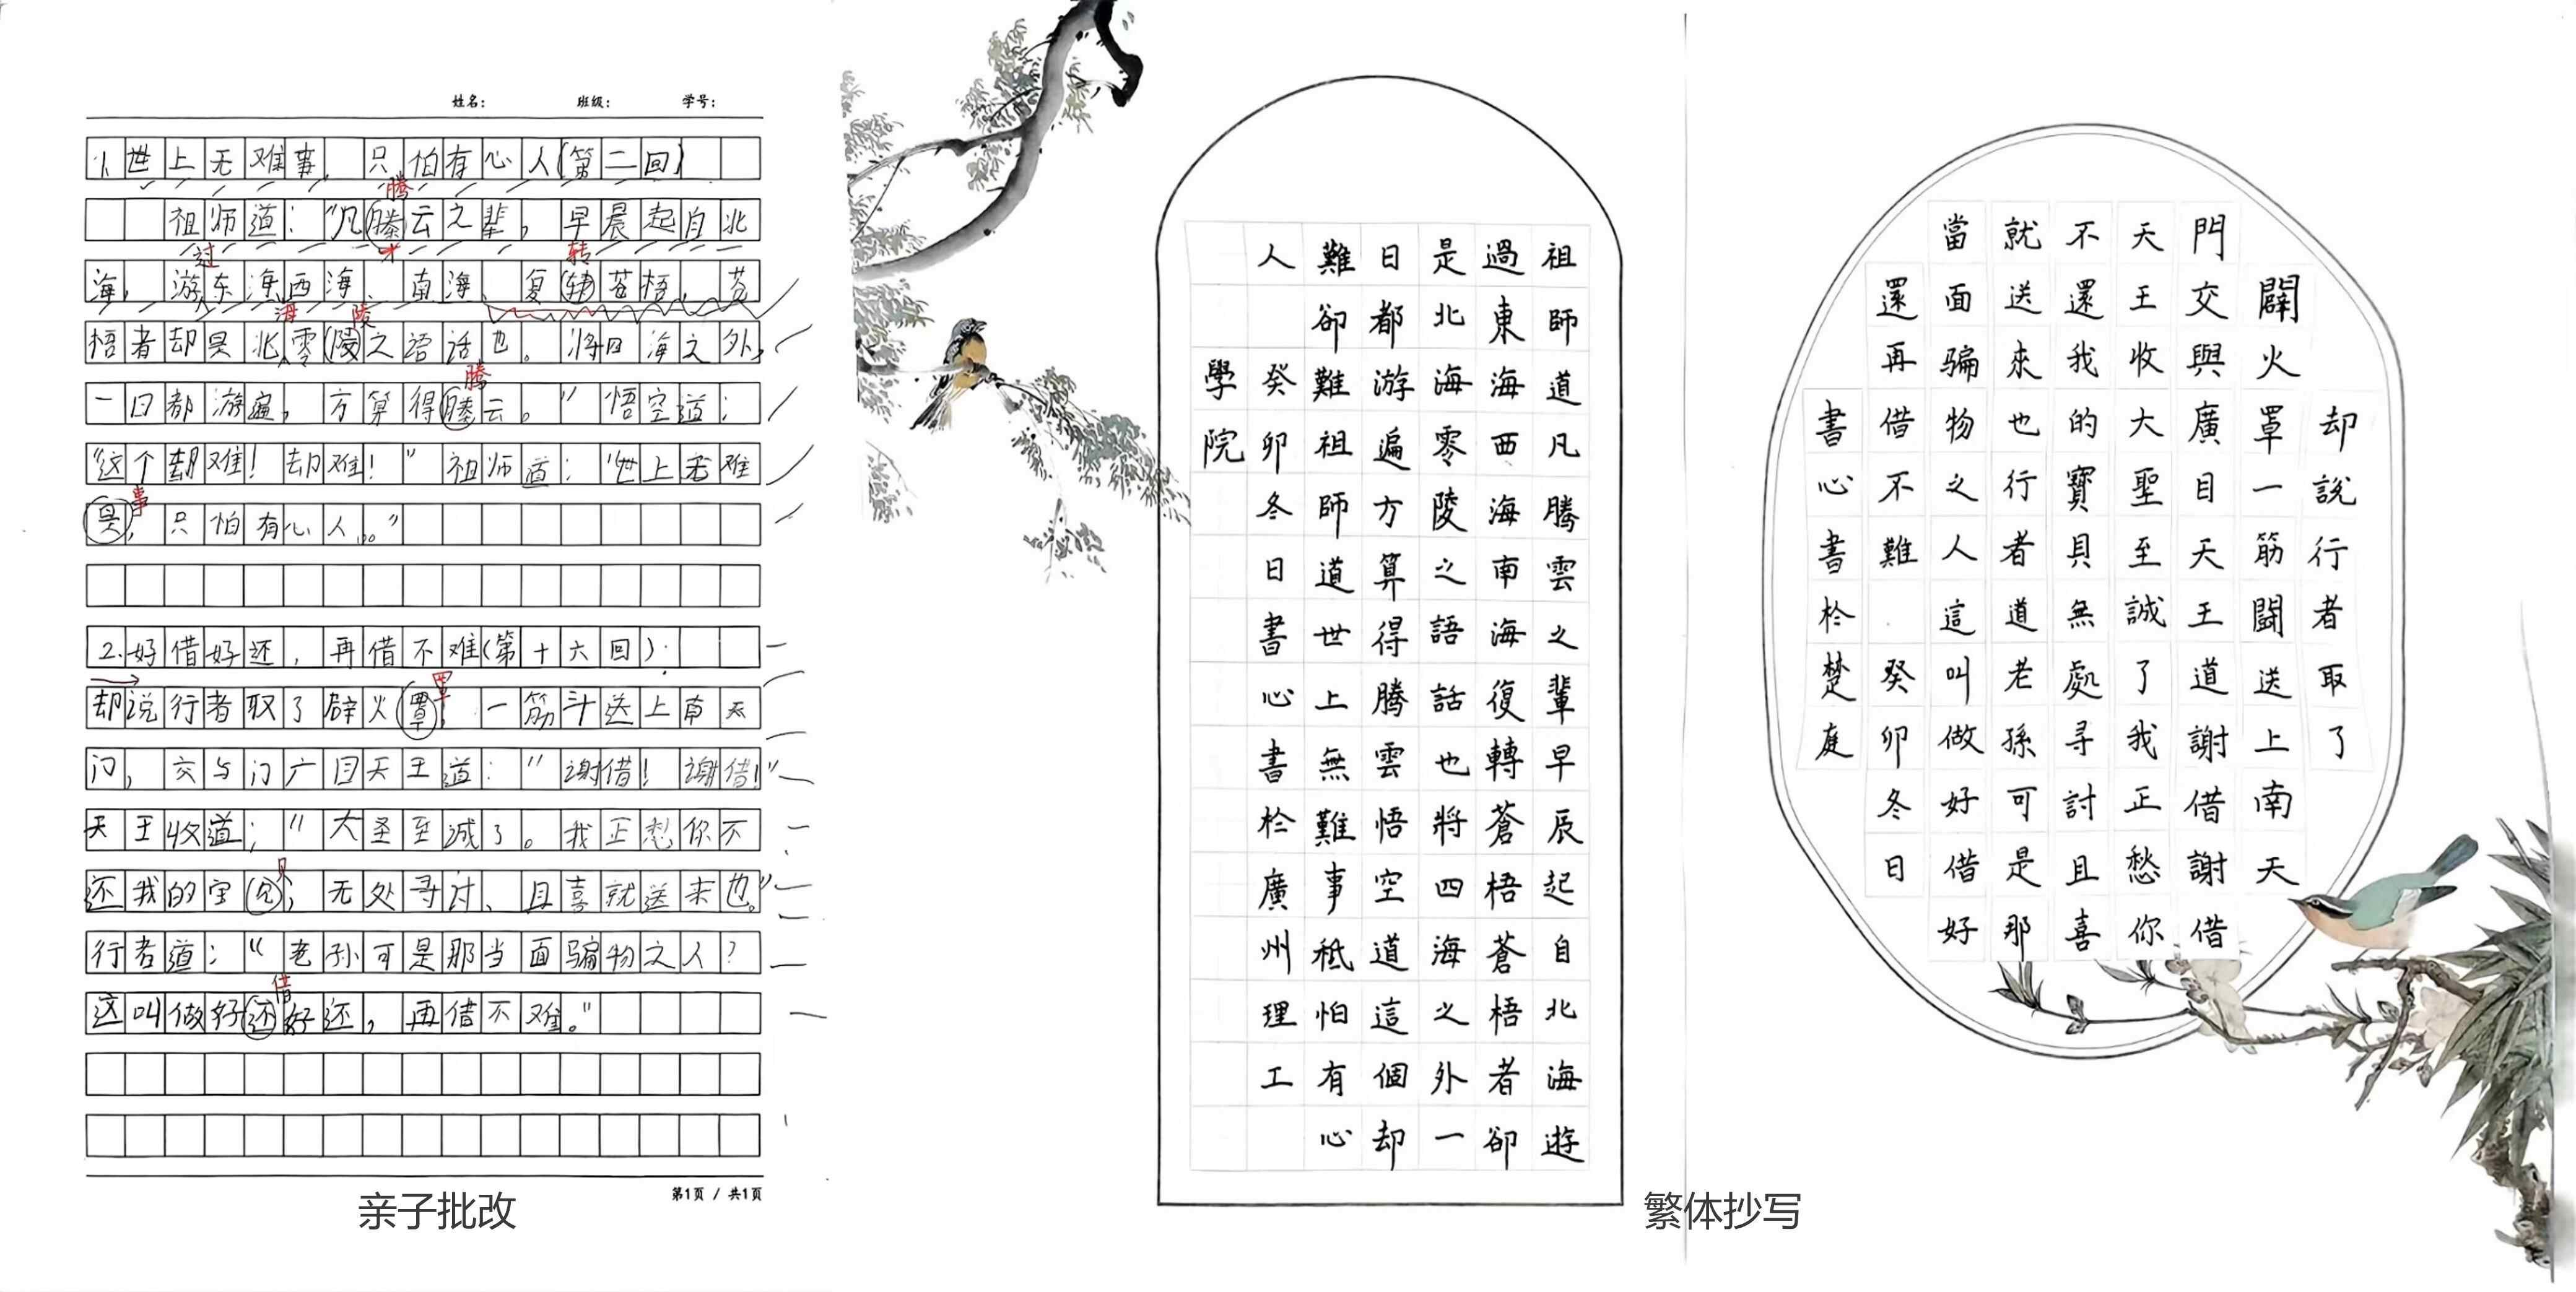 姓名： 班级： 学号：
1、世上无难事，只怕有心人(第二回)
腾
祖师道："凡滕云之辈，早晨起自北
过 转
海，游东海西海、南海、复转苍梧，苍
海 陵
梧者却是北零陵之语话也。将四海之外，
腾
一日都游遍，方算得滕云。"悟空道：
"这个却难！却难！"祖师道："世上无难
事
是，只怕有心人。"
2.好借好还，再借不难(第十六回)
罩
却说行者取了辟火覃，一筋斗送上南天
门，交与门广目天王道："谢借！谢借！"
天王收道："大圣至诚了。我正愁你不
贝
还我的宝见，无处寻讨、且喜就送来也。"
行者道："老孙可是那当面骗物之人？
借
这叫做好还好还，再借不难。"
第1页 / 共1页
亲子批改
祖師道凡腾雲之輩早辰起自北海遊
過東海西海南海復轉蒼梧蒼梧者卻
是北海零陵之語話也將四海之外一
日都游遍方算得腾雲悟空道這個却
難卻難祖師道世上無難事秪怕有心
人 癸卯冬日書心書於廣州理工
學院
却說行者取了
闢火罩一筋鬪送上南天
門交與廣目天王道謝借謝借
天王收大聖至誠了我正愁你
不還我的寶貝無處寻討且喜
就送來也行者道老孫可是那
當面騙物之人這叫做好借好
還再借不難 癸卯冬日
書心書於楚庭
繁体抄写